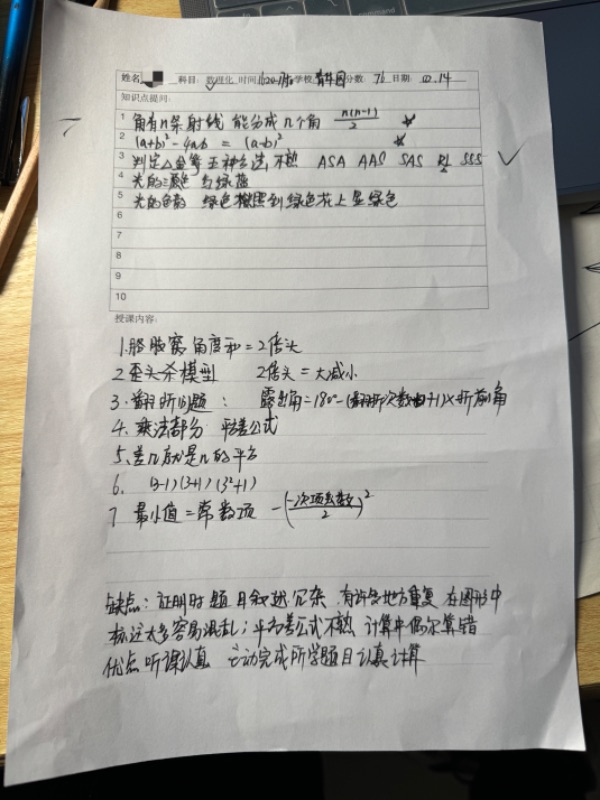 姓名 科目: 数理化 时间: 学校: 分数: 76 日期: 10.14
知识点提问:
1 角有n条射线 能分成几个角 n(n-1)/2
2 (a+b)²-4ab = (a-b)²
3 判定△全等 五种方法 不熟 ASA AAS SAS HL SSS
4 光的三原色 红绿蓝
5 光的色散 绿色 照到绿色花上显绿色
6
7
8
9
10
授课内容:
1. 胳肢窝角度和=2倍头
2 歪头杀模型 2倍头=大减小
3. 翻折问题: 露出角=180°-(翻折次数+1)×折前角
4. 乘法部分 平差公式
5. 差几就是几的平方
6. (3-1)(3+1)(3²+1)
7 最小值=常数项 -(一次项系数/2)²
缺点: 证明时题目叙述冗杂 有许多地方重复 在图形中
标注太多容易混乱; 平方差公式不熟 计算中偶尔算错
优点 听课认真 主动完成所学题目 认真计算